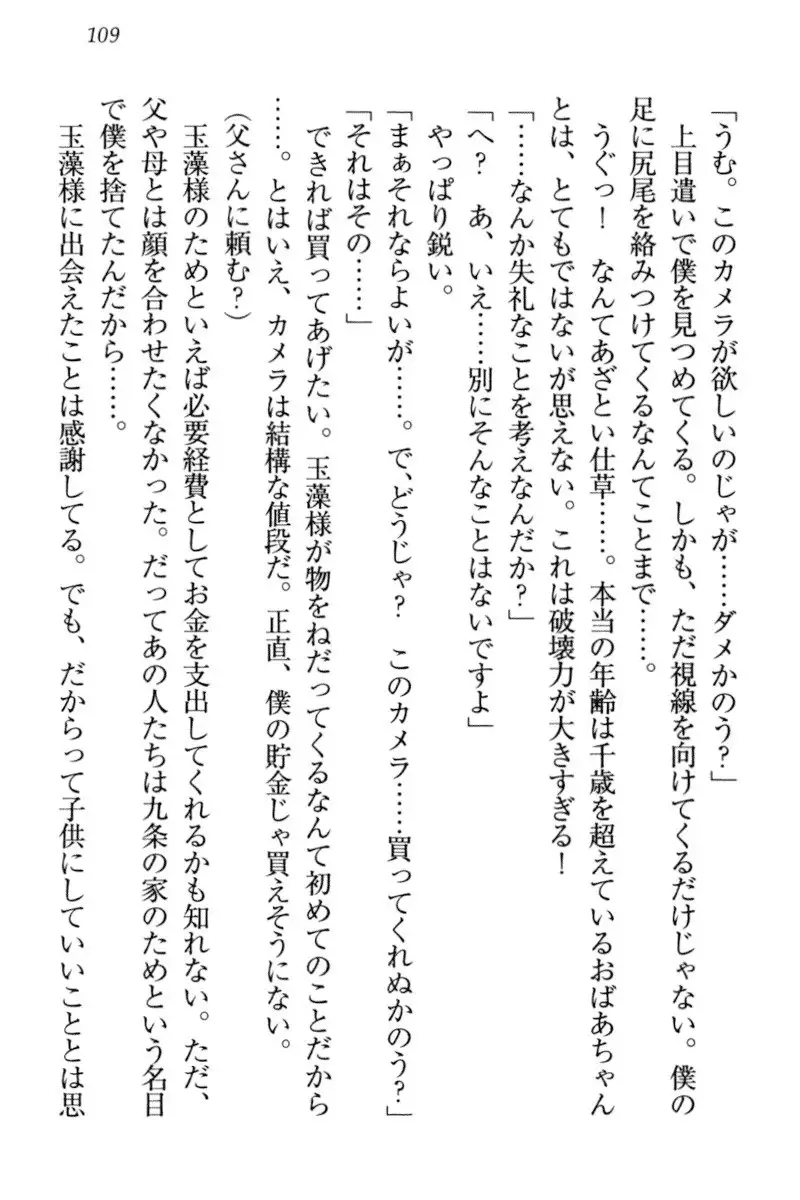 109
「うむ。このカメラが欲しいのじゃが……ダメかのう?」
上目遣いで僕を見つめてくる。しかも、ただ視線を向けてくるだけじゃない。僕の
足に尻尾を絡みつけてくるなんてことまで……。
うぐっ! なんてあざとい仕草……。本当の年齢は千歳を超えているおばあちゃん
とは、とてもではないが思えない。これは破壊力が大きすぎる!
「……なんか失礼なことを考えなんだか?」
「へ? あ、いえ……別にそんなことはないですよ」
やっぱり鋭い。
「まぁそれならよいが……。で、どうじゃ? このカメラ……買ってくれぬかのう?」
「それはその……」
できれば買ってあげたい。玉藻様が物をねだってくるなんて初めてのことだから
……。とはいえ、カメラは結構な値段だ。正直、僕の貯金じゃ買えそうにない。
(父さんに頼む?)
玉藻様のためといえば必要経費としてお金を支出してくれるかも知れない。ただ、
父や母とは顔を合わせたくなかった。だってあの人たちは九条の家のためという名目
で僕を捨てたんだから……。
玉藻様に出会えたことは感謝してる。でも、だからって子供にしていいこととは思